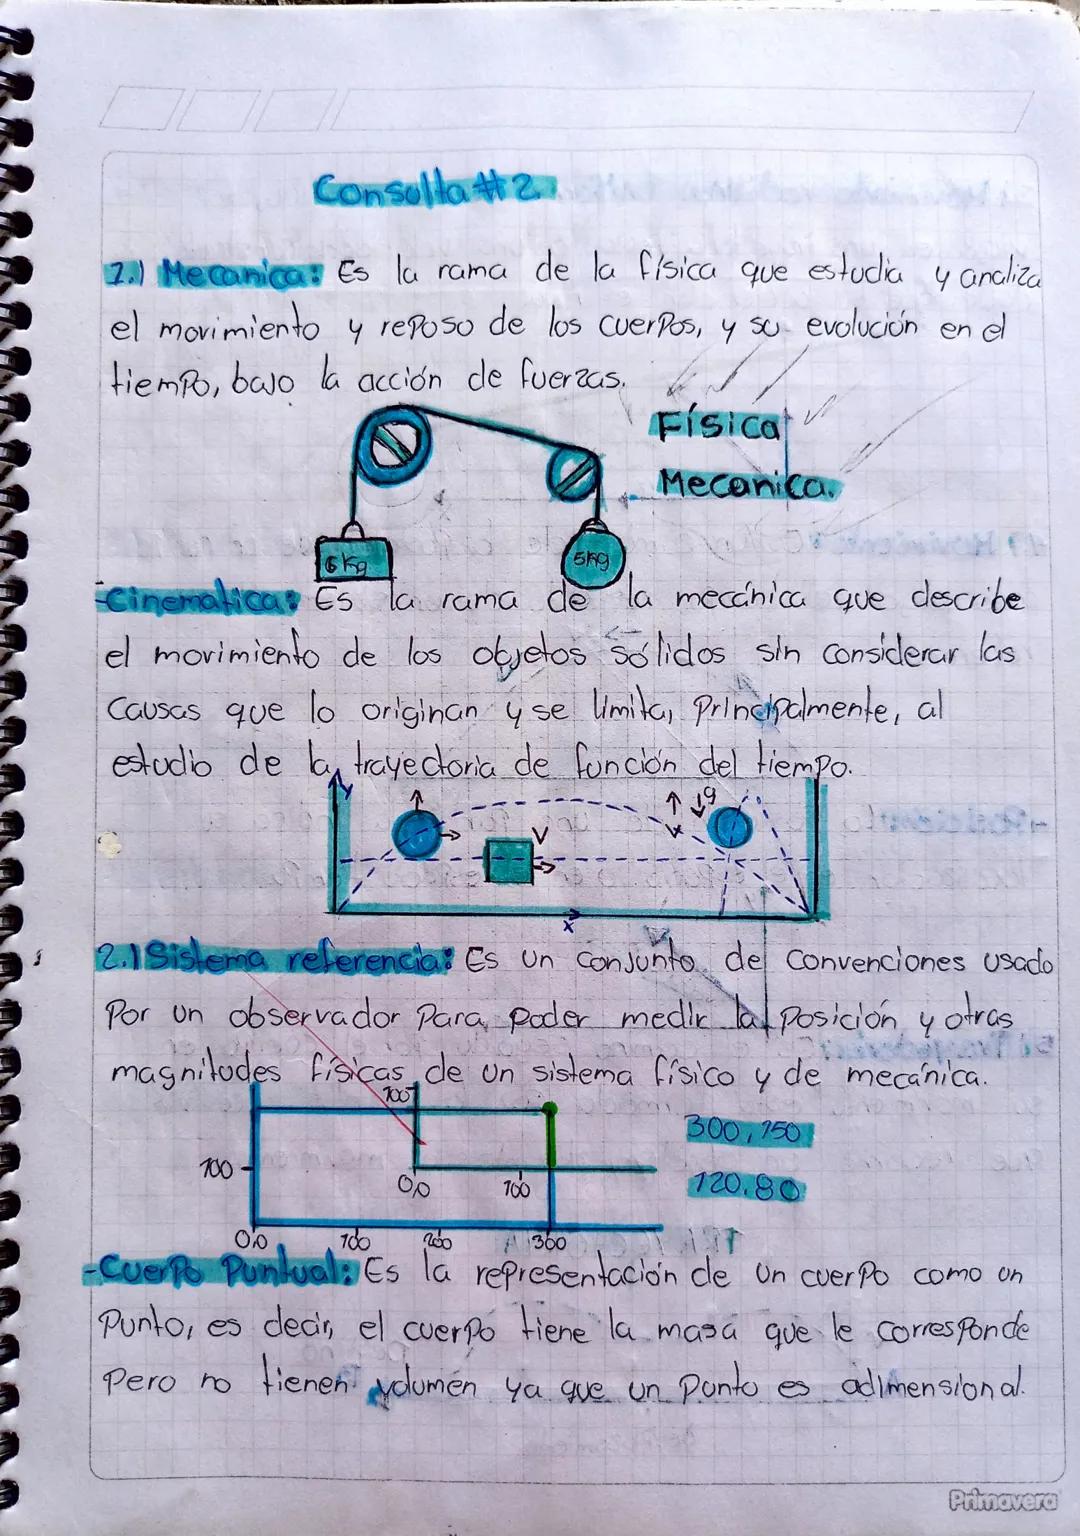 Consulta #2
2.) Mecanica: Es la rama de la física que estudia y analiza
el movimiento y reposo de los cuerpos, y su evolución en el
tiempo, bajo la acción de fuerzas.
Física
Mecanica.
6kg
5kg
-Cinematica: Es la rama de la mecánica que describe
el movimiento de los objetos sólidos sin considerar las
causas que lo originan y se limita, principalmente, al
estudio de la trayectoria de función del tiempo.
y
g
V
v
x
2.1 Sistema referencia: Es un conjunto de convenciones usado
por un observador para poder medir la posición y otras
magnitudes físicas de un sistema físico y de mecánica.
100
300, 150
100
0,0
100
120.80
0,0
100
200
300
-Cuerpo Puntual: Es la representación de un cuerpo como un
punto, es decir, el cuerpo tiene la masa que le corresponde
pero no tienen volumen ya que un punto es adimensional.
Primavera